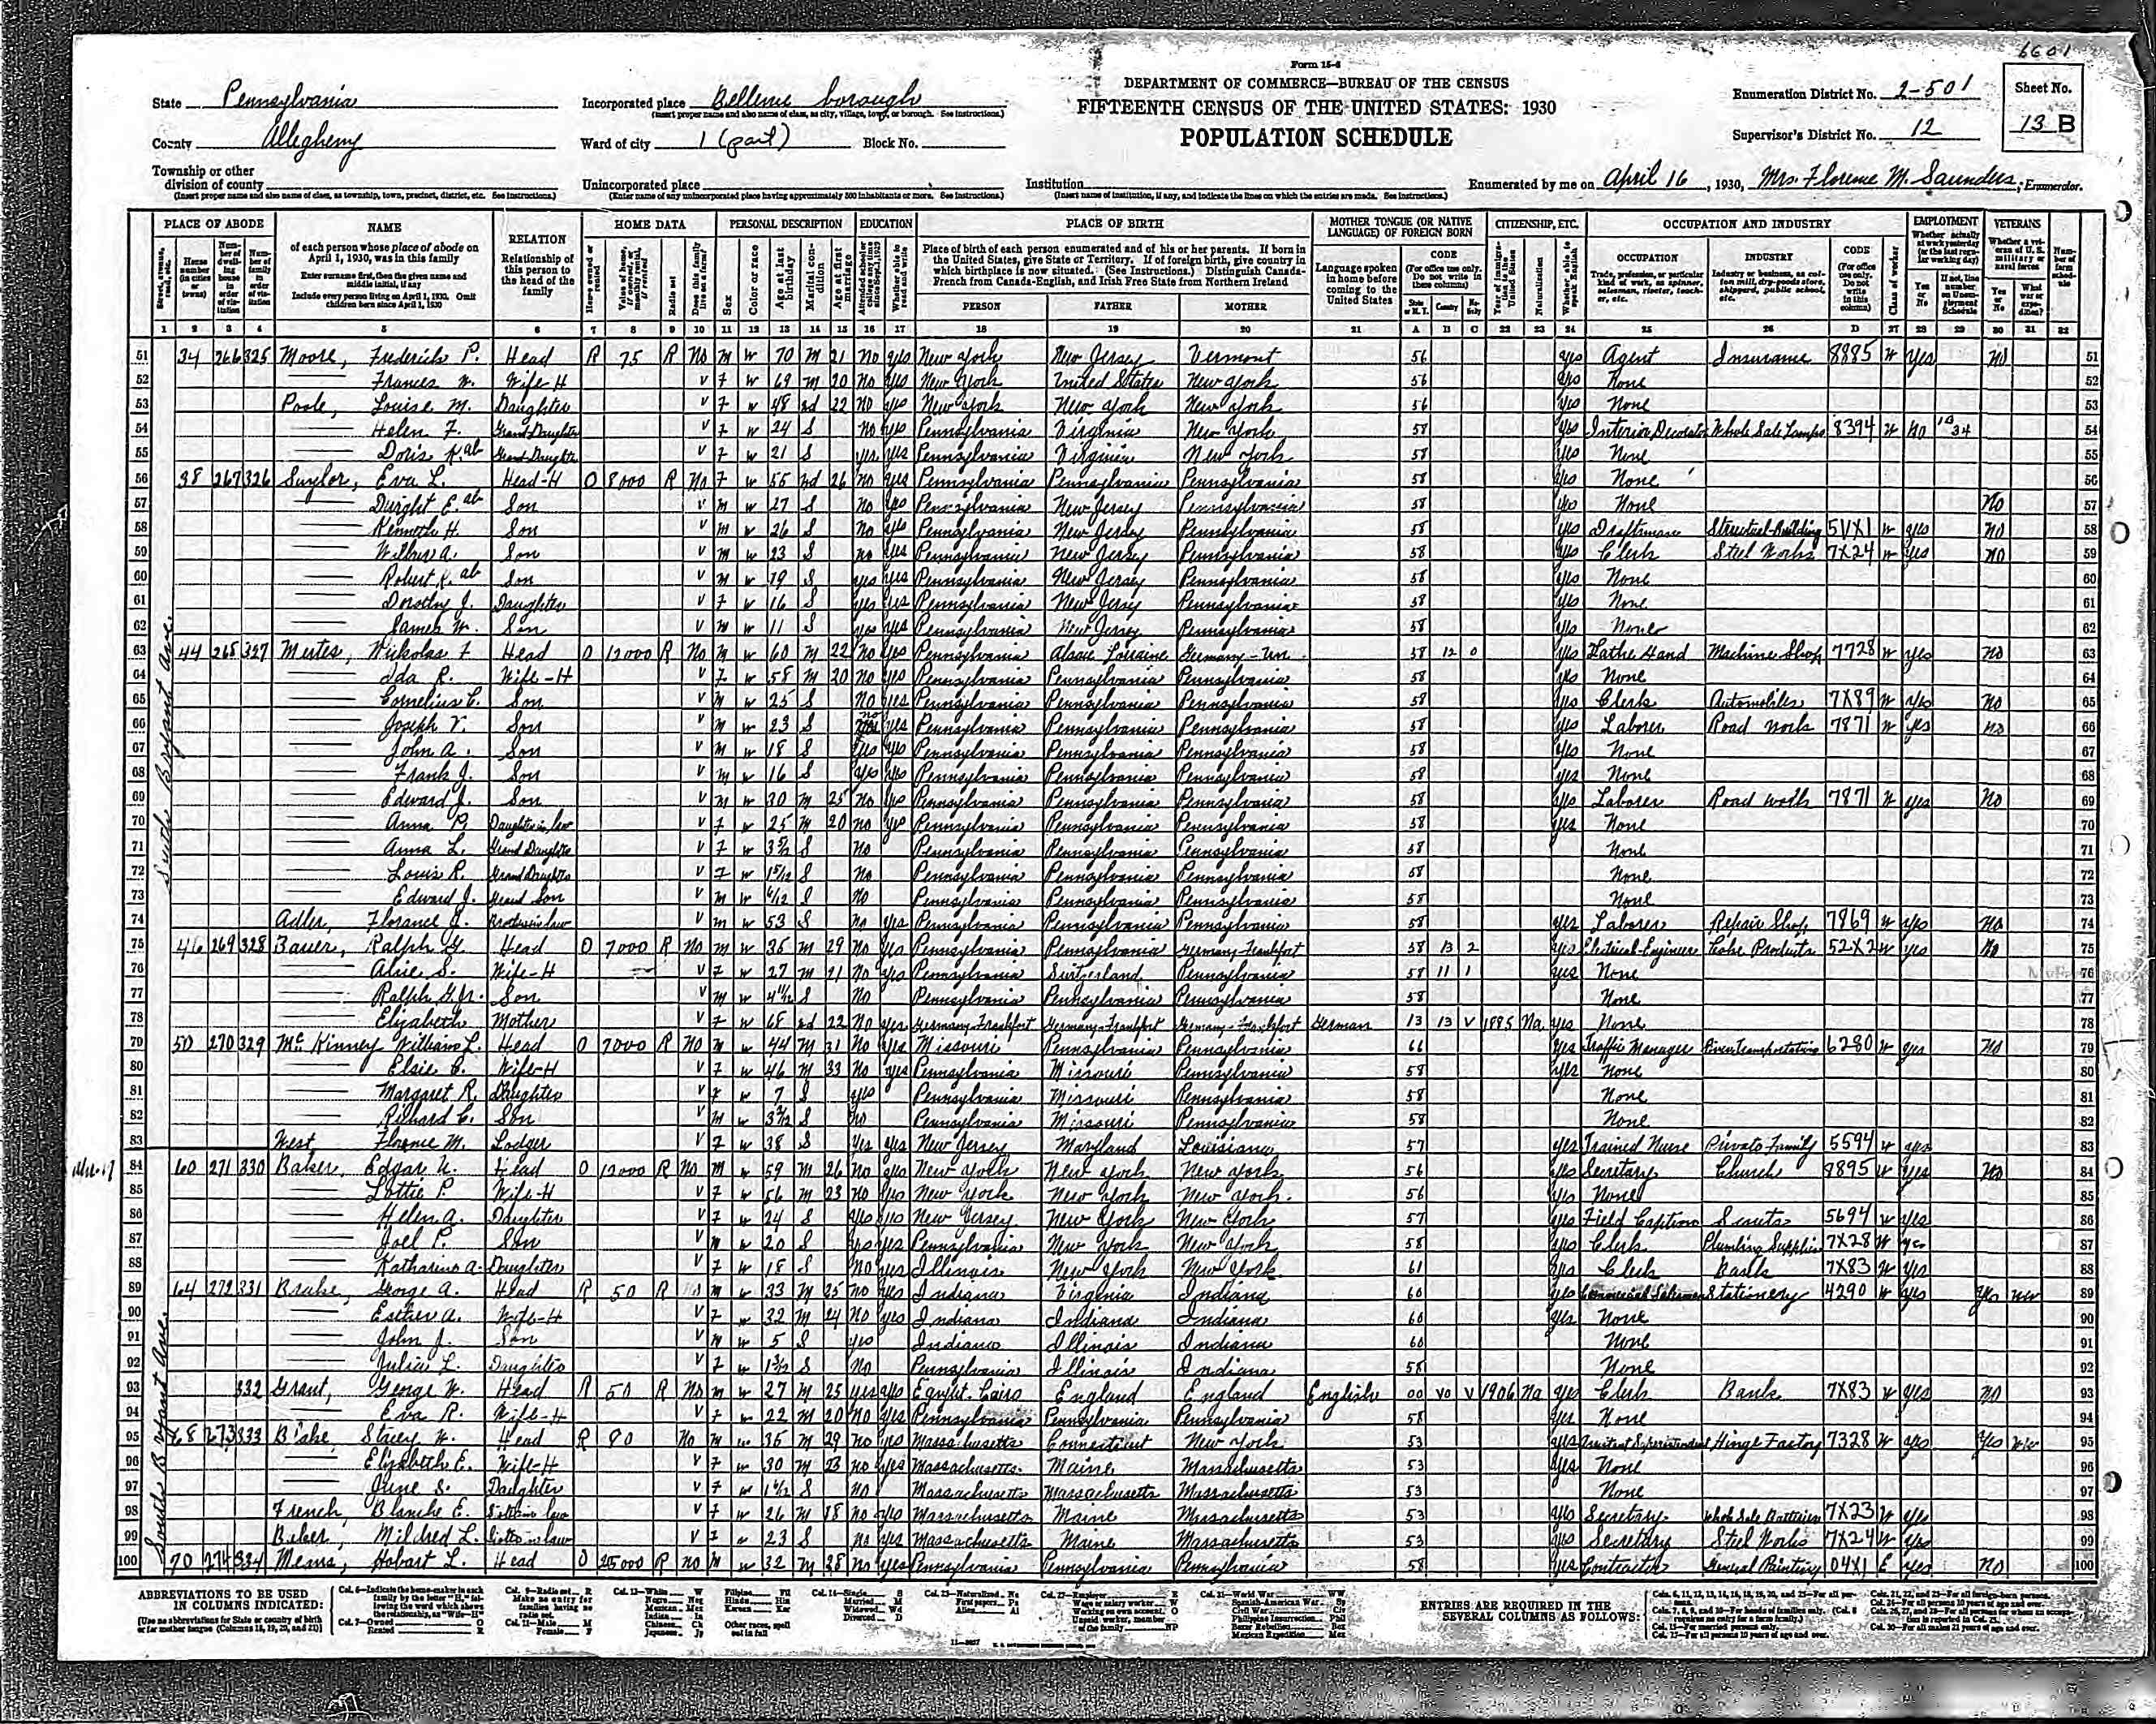 6601
Form 15-6
DEPARTMENT OF COMMERCE—BUREAU OF THE CENSUS
FIFTEENTH CENSUS OF THE UNITED STATES: 1930
POPULATION SCHEDULE
State Pennsylvania
County Allegheny
Township or other division of county
(Insert proper name and also name of class, as township, town, precinct, district, etc. See instructions.)
Incorporated place Bellevue borough
(Insert proper name and also name of class, as city, village, town, or borough. See instructions.)
Ward of city 1 (part) Block No.
Unincorporated place
(Enter name of any unincorporated place having approximately 500 inhabitants or more. See instructions.)
Institution
(Insert name of institution, if any, and indicate the lines on which the entries are made. See instructions.)
Enumeration District No. 2-501
Supervisor's District No. 12
Sheet No. 13 B
Enumerated by me on April 16, 1930, Mrs. Florence M. Saunders, Enumerator.
PLACE OF ABODE NAME RELATION HOME DATA PERSONAL DESCRIPTION EDUCATION PLACE OF BIRTH MOTHER TONGUE (OR NATIVE LANGUAGE) OF FOREIGN BORN CITIZENSHIP, ETC. OCCUPATION AND INDUSTRY EMPLOYMENT VETERANS
of each person whose place of abode on April 1, 1930, was in this family
Enter surname first, then the given name and middle initial, if any
Include every person living on April 1, 1930. Omit children born since April 1, 1930
Relationship of this person to the head of the family
Place of birth of each person enumerated and of his or her parents. If born in the United States, give State or Territory. If of foreign birth, give country in which birthplace is now situated. (See Instructions.) Distinguish Canada-French from Canada-English, and Irish Free State from Northern Ireland
PERSON FATHER MOTHER
Language spoken in home before coming to the United States
CODE
OCCUPATION INDUSTRY CODE
South Bryant Ave.
51 34 266 325 Moore, Frederick P. Head R 75 R No M W 70 M 21 No yes New York New Jersey Vermont 56 yes Agent Insurance 8885 W yes no 51
52 Frances W. Wife-H V F W 69 M 20 No yes New York United States New York 56 yes None 52
53 Poole, Louise M. Daughter V F W 48 22 No yes New York New York New York 56 yes None 53
54 Helen F. Grand Daughter V F W 24 S No yes Pennsylvania Virginia New York 58 yes Interior Decorator Whole Sale Lamps 8394 W No 54
55 Doris K. ab Grand Daughter V F W 21 S yes yes Pennsylvania Virginia New York 58 yes None 55
56 38 267 326 Eva L. Head-H O 8000 R No F W 55 26 no yes Pennsylvania Pennsylvania Pennsylvania 58 yes None 56
57 Dwight E. ab Son V M W 27 S no yes Pennsylvania New Jersey Pennsylvania 58 yes None No 57
58 Kenneth H. Son V M W 26 S No yes Pennsylvania New Jersey Pennsylvania 58 yes Draftsman Structural-Building 5VX1 W yes no 58
59 Wilbur A. Son V M W 23 S no yes Pennsylvania New Jersey Pennsylvania 58 yes Clerk Steel Works 7X24 W yes no 59
60 Robert K. ab Son V M W 19 S yes yes Pennsylvania New Jersey Pennsylvania 58 yes None 60
61 Dorothy J. Daughter V F W 16 S yes yes Pennsylvania New Jersey Pennsylvania 58 yes None 61
62 James W. Son V M W 11 S yes yes Pennsylvania New Jersey Pennsylvania 58 yes None 62
63 44 268 327 Mertes, Nickolas F Head O 12000 R No M W 60 M 22 No yes Pennsylvania Alsace Lorraine Germany-Un. 58 12 0 yes Lathe Hand Machine Shop 7728 W yes no 63
64 Ida R. Wife-H V F W 58 M 20 No yes Pennsylvania Pennsylvania Pennsylvania 58 yes None 64
65 Cornelius C. Son V M W 25 S No yes Pennsylvania Pennsylvania Pennsylvania 58 yes Clerk Automobiles 7X89 W yes No 65
66 Joseph V. Son V M W 23 S no yes Pennsylvania Pennsylvania Pennsylvania 58 yes Laborer Road work 7871 W yes no 66
67 John A. Son V M W 18 S yes yes Pennsylvania Pennsylvania Pennsylvania 58 yes None 67
68 Frank J. Son V M W 16 S yes yes Pennsylvania Pennsylvania Pennsylvania 58 yes None 68
69 Edward J. Son V M W 30 M 25 No yes Pennsylvania Pennsylvania Pennsylvania 58 yes Laborer Road work 7871 W yes No 69
70 Anna P. Daughter in law V F W 25 M 20 no yes Pennsylvania Pennsylvania Pennsylvania 58 yes None 70
71 Anna L. Grand Daughter V F W S No Pennsylvania Pennsylvania Pennsylvania 58 None 71
72 Louis R. Grand Daughter V F W S No Pennsylvania Pennsylvania Pennsylvania 58 None 72
73 Edward J. Grand Son V M W S No Pennsylvania Pennsylvania Pennsylvania 58 None 73
74 Adler, Florance J. Brother in law V M W 53 S No yes Pennsylvania Pennsylvania Pennsylvania 58 yes Laborer Repair Shop 7869 W yes No 74
75 46 269 328 Bauer, Ralph G. Head O 7000 R No M W 35 M 29 No yes Pennsylvania Pennsylvania Germany-Frankfort 58 13 2 yes Electrical-Engineer Coke Products 52X2 W yes No 75
76 Alice S. Wife-H V F W 27 M 21 No yes Pennsylvania Switzerland Pennsylvania 58 11 1 yes None 76
77 Ralph G. Jr. Son V M W 4 11/12 S No Pennsylvania Pennsylvania Pennsylvania 58 None 77
78 Elizabeth Mother V F W 68 22 No yes Germany-Frankfort Germany-Frankfort Germany-Frankfort German 13 13 V 1885 Na yes None 78
79 50 270 329 McKinney William L. Head O 7000 R No M W 44 M 31 No yes Missouri Pennsylvania Pennsylvania 66 yes Traffic Manager River Transportation 6280 W yes no 79
80 Elsie C. Wife-H V F W 46 M 33 No yes Pennsylvania Missouri Pennsylvania 58 yes None 80
81 Margaret R. Daughter V F W 7 S yes Pennsylvania Missouri Pennsylvania 58 None 81
82 Richard C. Son V M W S no Pennsylvania Missouri Pennsylvania 58 None 82
83 West, Florence M. Lodger V F W 38 S yes yes New Jersey Maryland Louisiana 57 yes Trained Nurse Private Family 5594 W yes 83
84 60 271 330 Baker, Edgar N. Head O 12000 R No M W 59 M 26 No yes New York New York New York 56 yes Secretary Church 8895 W yes No 84
85 Lottie P. Wife-H V F W 56 M 23 no yes New York New York New York. 56 yes None 85
86 Helen A. Daughter V F W 24 S yes yes New Jersey New York New York 57 yes Field Captain Scouts 5694 W yes 86
87 Joel P. Son V M W 20 S yes yes Pennsylvania New York New York 58 yes Clerk Plumbing Supplies 7X28 W yes 87
88 Katharine A. Daughter V F W 18 S No yes Illinois New York New York 61 yes Clerk Bank 7X83 W yes 88
89 64 272 331 Brake, George A. Head R 50 R M W 33 M 25 no yes Indiana Virginia Indiana 60 yes Commercial Salesman Stationery 4290 W yes yes WW 89
90 Esther A. Wife-H V F W 32 M 24 No yes Indiana Indiana Indiana 60 yes None 90
91 John J. Son V M W 5 S yes Indiana Illinois Indiana 60 None 91
92 Julia L. Daughter V F W S No Pennsylvania Illinois Indiana 58 None 92
93 332 Grant, George W. Head R 50 R No M W 27 M 25 yes yes Egypt. Cairo England England English 00 V0 V 1906 Na yes Clerk Bank 7X83 W yes no 93
94 Eva R. Wife-H V F W 22 M 20 No yes Pennsylvania Pennsylvania Pennsylvania 58 yes None 94
95 68 273 333 Stacy W. Head R 90 No M W 35 M 29 no yes Massachusetts Connecticut New York 53 yes Assistant Superintendent Hinge Factory 7328 W yes yes WW 95
96 Elizabeth E. Wife-H V F W 30 M 23 no yes Massachusetts Maine Massachusetts 53 yes None 96
97 June S. Daughter V F W S no Massachusetts Massachusetts Massachusetts 53 None 97
98 French, Blanche E. Sister in law V F W 26 M 18 no yes Massachusetts Maine Massachusetts 53 yes Secretary Whole Sale Batteries 7X23 W yes 98
99 Baker, Mildred L. Sister in law V F W 23 S no yes Massachusetts Maine Massachusetts 53 yes Secretary Steel Works 7X24 W yes 99
100 70 274 334 Means, Hobart L. Head O R no M W 32 M 28 no yes Pennsylvania Pennsylvania Pennsylvania 58 yes Contractor General Painting 04X1 E yes no 100
South Bryant Ave.
ABBREVIATIONS TO BE USED IN COLUMNS INDICATED:
(Use no abbreviations for State or country of birth or for mother tongue (Columns 18, 19, 20, and 21))
ENTRIES ARE REQUIRED IN THE SEVERAL COLUMNS AS FOLLOWS: